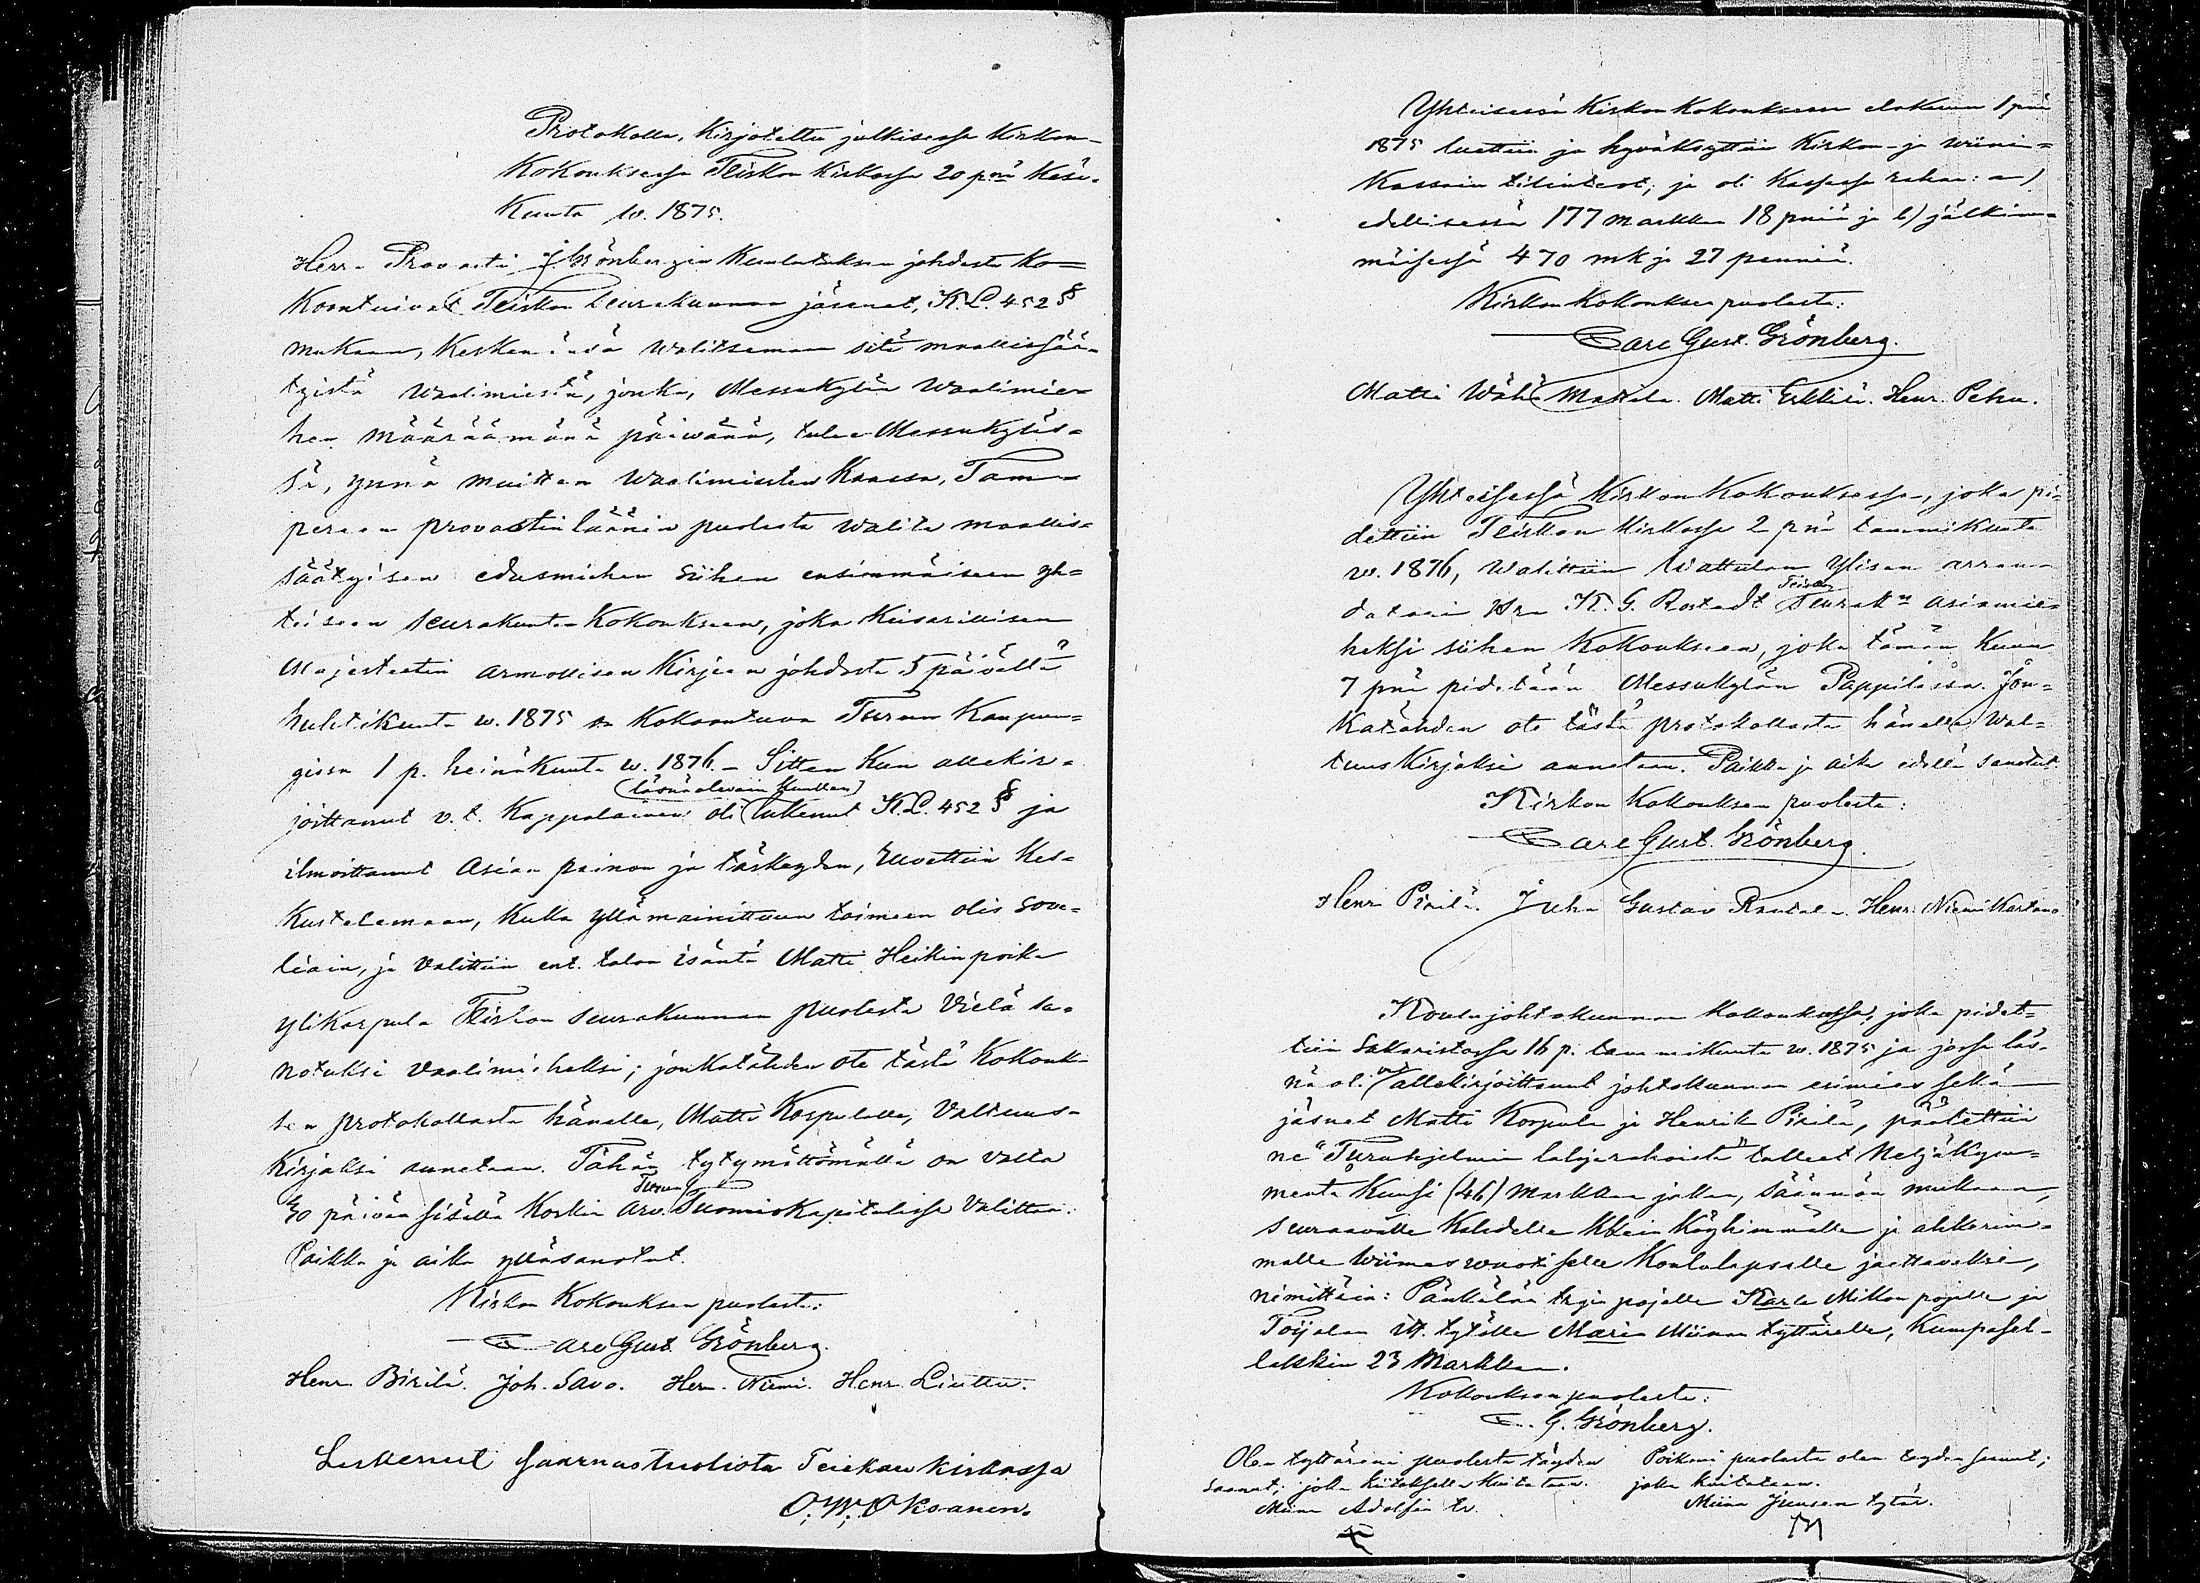 Protokolla, Kirjotettu julkisessa Kirkon-
Kokouksessa Teiskon Kirkossa 20 p:nä Kesä-
Kuuta w. 1875.
Herra Provasti Grönbergin Kuulutuksen johdosta ko=
Koontuivat Teiskon seurakunnan jäsenet, K.L. 452 §
mukaan, Keskenänsä walitsemaan sitä maallissää-
tyistä waalimiestä, jonka, Messukylän waalimie-
hen määräämänä päiwänä, tulee Messukyläs-
sä, ynnä muitten waalimiesten Kanssa, Tam-
pereen provastin läänin puolesta walita maallis-
säätyisen edusmiehen siihen ensimmäiseen yh=
teiseen seurakunta Kokoukseen, joka Keisarillisen
Majesteetin armollisen Kirjeen johdosta 5 päivältä
huhtikuuta w. 1875 on Kokoontuva Turun Kaupun=
gissa 1 p. heinäkuuta w. 1876. - Sitten Kun allekir-
(läsnäolevain kuullen)
joittanut v. t. Kappalainen oli lukenut K.L. 452 § ja
ilmoittanut asian painon ja tärkeyden, ruvettiin Kes-
Kustelemaan, Kuka yllämainittuun toimeen olis sove-
liain, ja valittiin ent. talon isäntä Matti Heikinpoika
Ylikorpula Teiskon seurakunnan puolesta Vielä sa-
notuksi Vaalimieheksi; jonkatähden ote tästä Kokouk-
sen protokollasta hänelle, Matti Korpulalle, Valtuus-
Kirjaksi annetaan. Tähän tytymättömällä on valta
Turun
30 päivän sisällä Korkia arv. Tuomiokapitulissa Valittaa.
Paikka ja aika ylläsanotut.
Kirkon Kokouksen puolesta:
Carl Gust. Grönberg.
Henr. Pirilä. Joh. Savo. Herm. Niemi. Henr. Liuttu.
Lukenut saarnastuolista Teiskon kirkossa
O. W. Oksanen.
Yhteisessä Kirkon Kokouksessa elokuun 1 p:nä
1875 luettiin ja hyväksyttiin Kirkon- ja wiini=
Kassain tilinteot; ja oli Kassassa rahaa: a)
edellisessä 177 markkaa 18 penniä ja b) jälkim=
mäisessä 470 mk ja 27 penniä.
Kirkon Kokouksen puolesta:
Carl Gust. Grönberg.
Matti Wähä Mattila. Matti Erkkilä. Henr. Pehu.
Yhteisessä Kirkon Kokouksessa, joka pi=
dettiin Teiskon Kirkossa 2 p:nä tammikuuta
w. 1876, walittiin Wattulan Ylisen arren-
Teiskon
datoori Hra K. G. Rostedt Seurak:n asiamie-
heksi siihen Kokoukseen, joka tämän Kuun
7 p:nä pidetään Messukylän Pappilassa. Jon-
Katähden ote tästä protokollasta hänelle Wal=
tuus Kirjaksi annetaan. Paikka ja aika edellä sanotut.
Kirkon Kokouksen puolesta:
Carl Gust. Grönberg.
Henr. Pirilä. Juha Gustav Rautala. Henr. Niemikartano
Koulujohtokunnan Kokouksessa, joka pidet=
tiin Sakaristossa 16 p. tammikuuta w. 1875 ja jossa läs-
nä oli allekirjoittanut johtokunnan esimies sekä
jäsnet Matti Korpula ja Henrik Pirilä, päätettiin
ne "Turuhjelmin lahjarahoista" tulleet Neljäkym=
mentä Kuusi (46) Markkaa jakaa, säännön mukaan,
seuraavalle Kahdelle Köyhimmälle ja ahkerim-
malle Wiimes wuotiselle Koululapselle jaettavaksi,
nimittäin: pojalle Karle Mikon pojalle ja
Toijalan itt. tytölle Maria Miinan tyttärelle, Kumpasel-
lakkin 23 Markkaa.
Kokouksen puolesta:
C. G. Grönberg.
Olen tyttäreni puolesta täyden
saanut; joka kiitoksella kuitataan.
Miina Adolfin tr.
Poikani puolesta olen täyden saanut;
joka kuitataan.
Miina Juusen tytär.